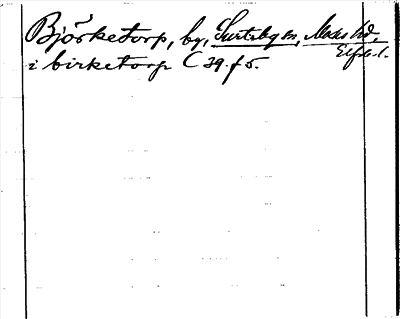 Björketorp, by, Surteby sn, Marks hd,
Elfsb. l.
i birketorp C 39. f 5.